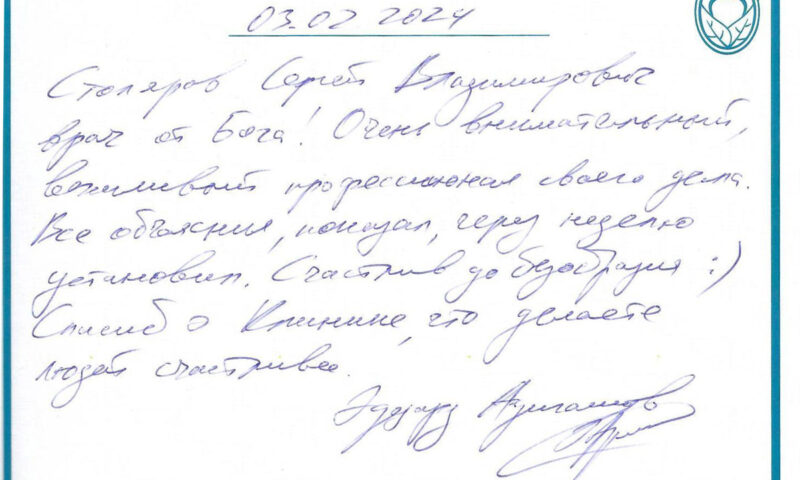 03.02 2024
Столяров Сергей Владимирович
врач от Бога! Очень внимательный,
вежливый профессионал своего дела.
Все объяснил, показал, через неделю
установил. Счастлив до безобразия :)
Спасибо Клинике, что делаете
людей счастливее.
Эдуард